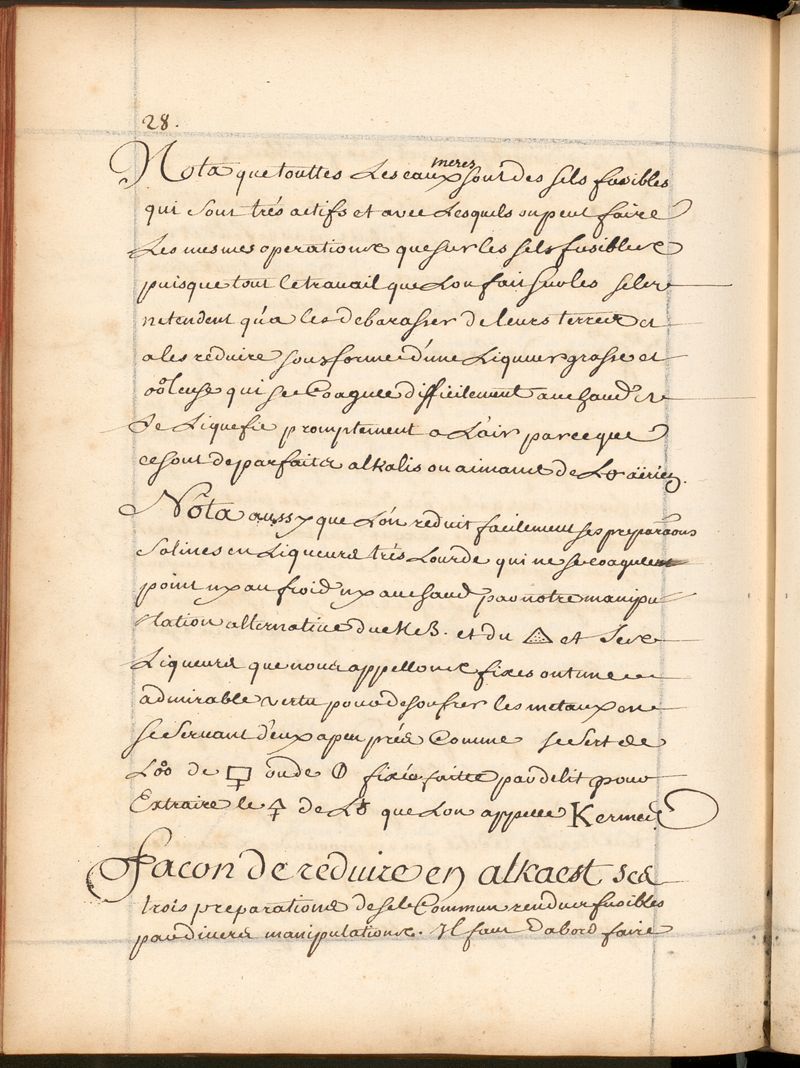 28.
Nota que touttes Les eaux meres sont des sels fusibles
qui sont trés actifs et avec Lesquels on peut faire
Les mesmes operations que sur les sels fusibles
puisque tout le travail que Lon fait sur les sels
ne tendent qu'a les debarasser de leurs terres et
a les reduire sous forme d'une Liqueur grasse et
qui se Coagule difficilement au chaud et
se Liquefie promptement a L'air parce que
ce sont de parfaits alkalis ou aimans de L aërien.
Nota aussy que L'on reduit facilement ses preparaons
Salines en Liqueurs trés Lourde qui ne se coagulent
point ny au froid ny au chaud par notre manipu
lation alternative du et du 🜂 et Ses
Liqueurs que nous appellons fixes ont une
admirable vertu pour desoufrer les metaux en
se servant d'eux a peu prés Comme se sert de
L de ou de fixée faitte par delit pour
Extraire le 🜍 de L♁ que Lon appelle Kermes.
Facon de reduire en alkaest ses
trois preparations de sel Commun rendues fusibles
par divers manipulations. Il faut d'abord faire